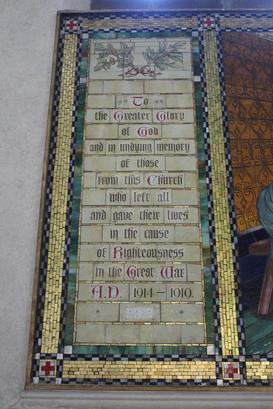 To
the Greater Glory
of God
and in undying memory
of those
from this Church
who left all
and gave their lives
in the cause
of Righteousness
in the Great War
A.D. 1914 — 1919.